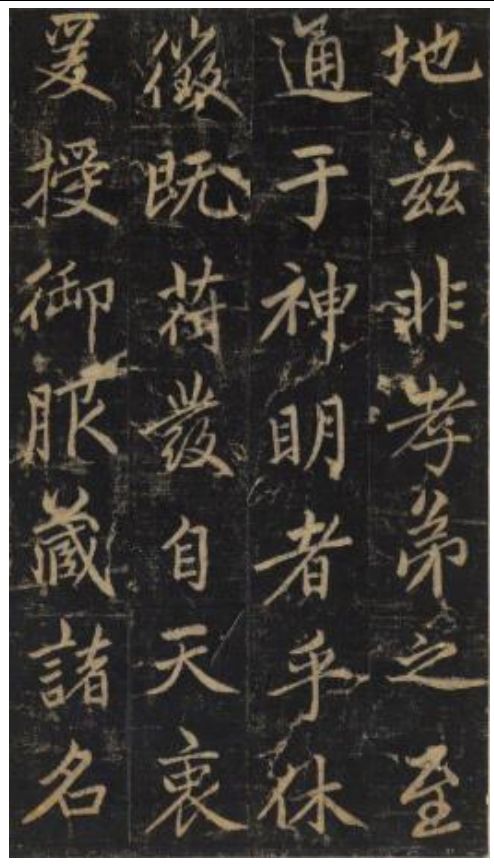 地茲非孝弟之至
通于神明者乎休
徵既荷發自天衷
爰授御服藏諸名